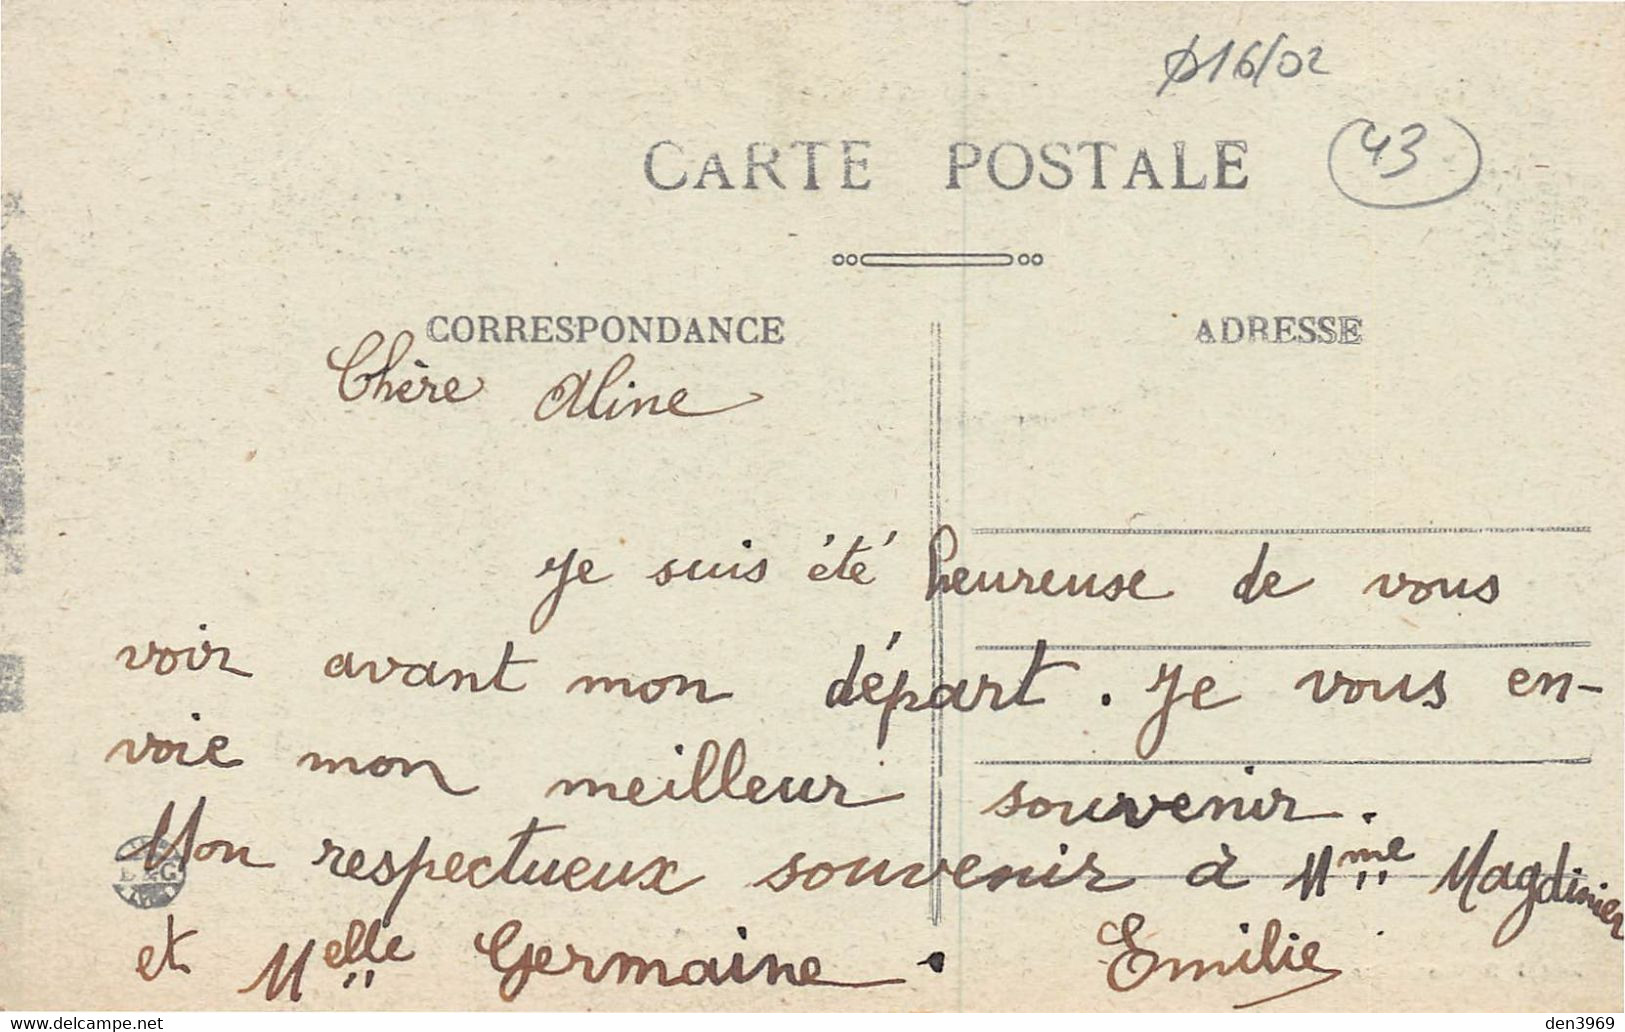 16/02
CARTE POSTALE
43
CORRESPONDANCE
ADRESSE
Chère Aline
Je suis été heureuse de vous
voir avant mon départ. Je vous en-
voie mon meilleur souvenir.
Mon respectueux souvenir à Mme Magdinier
et Melle Germaine. Emilie
www.delcampe.net
den3969